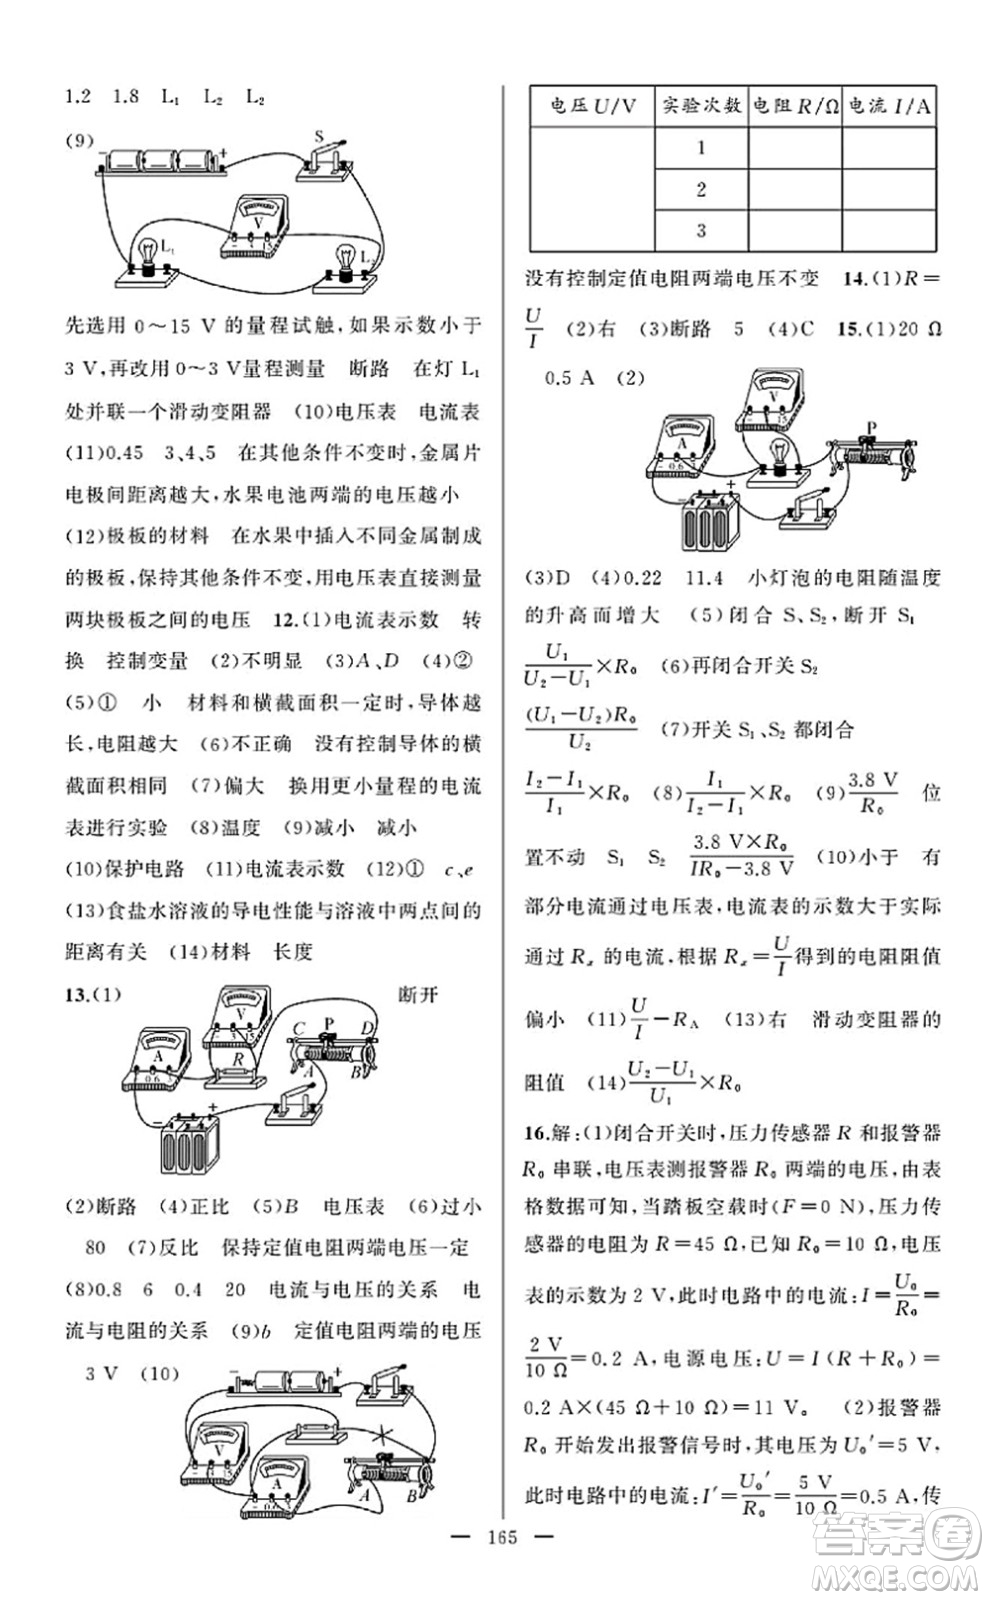 1.2 1.8 L₁ L₂ L₂
(9)
− + S
V
− 3 15
L₁ L₂
先选用 0～15 V 的量程试触,如果示数小于
3 V,再改用 0～3 V量程测量 断路 在灯 L₁
处并联一个滑动变阻器 (10)电压表 电流表
(11)0.45 3、4、5 在其他条件不变时,金属片
电极间距离越大,水果电池两端的电压越小
(12)极板的材料 在水果中插入不同金属制成
的极板,保持其他条件不变,用电压表直接测量
两块极板之间的电压 12.(1)电流表示数 转
换 控制变量 (2)不明显 (3)A、D (4)②
(5)① 小 材料和横截面积一定时,导体越
长,电阻越大 (6)不正确 没有控制导体的横
截面积相同 (7)偏大 换用更小量程的电流
表进行实验 (8)温度 (9)减小 减小
(10)保护电路 (11)电流表示数 (12)① c、e
(13)食盐水溶液的导电性能与溶液中两点间的
距离有关 (14)材料 长度
13.(1) 断开
V
− 3 15
A
− 0.6 3
R
C P D
A B
− +
(2)断路 (4)正比 (5)B 电压表 (6)过小
80 (7)反比 保持定值电阻两端电压一定
(8)0.8 6 0.4 20 电流与电压的关系 电
流与电阻的关系 (9)b 定值电阻两端的电压
3 V (10)
− +
V
− 3 15
A
− 0.6 3
P
A B
电压 U/V 实验次数 电阻 R/Ω 电流 I/A
1
2
3
没有控制定值电阻两端电压不变 14.(1)R＝
U/I (2)右 (3)断路 5 (4)C 15.(1)20 Ω
0.5 A (2)
V
− 3 15
A
− 0.6 3
P
− +
(3)D (4)0.22 11.4 小灯泡的电阻随温度
的升高而增大 (5)闭合 S、S₂,断开 S₁
U₁/(U₂－U₁)×R₀ (6)再闭合开关 S₂
(U₁－U₂)R₀/U₂ (7)开关 S₁、S₂ 都闭合
(I₂－I₁)/I₁×R₀ (8)I₁/(I₂－I₁)×R₀ (9)3.8 V/R₀ 位
置不动 S₁ S₂ 3.8 V×R₀/(IR₀－3.8 V) (10)小于 有
部分电流通过电压表,电流表的示数大于实际
通过 Rₓ 的电流,根据 Rₓ＝U/I得到的电阻阻值
偏小 (11)U/I－R_A (13)右 滑动变阻器的
阻值 (14)(U₂－U₁)/U₁×R₀
16.解:(1)闭合开关时,压力传感器 R 和报警器
R₀ 串联,电压表测报警器 R₀ 两端的电压,由表
格数据可知,当踏板空载时(F＝0 N),压力传
感器的电阻为 R＝45 Ω,已知 R₀＝10 Ω,电压
表的示数为 2 V,此时电路中的电流:I＝U₀/R₀＝
2 V/10 Ω＝0.2 A,电源电压:U＝I(R＋R₀)＝
0.2 A×(45 Ω＋10 Ω)＝11 V。 (2)报警器
R₀ 开始发出报警信号时,其电压为U₀′＝5 V,
此时电路中的电流:I′＝U₀′/R₀＝5 V/10 Ω＝0.5 A,传
— 165 —
答案圈
MXQE.COM